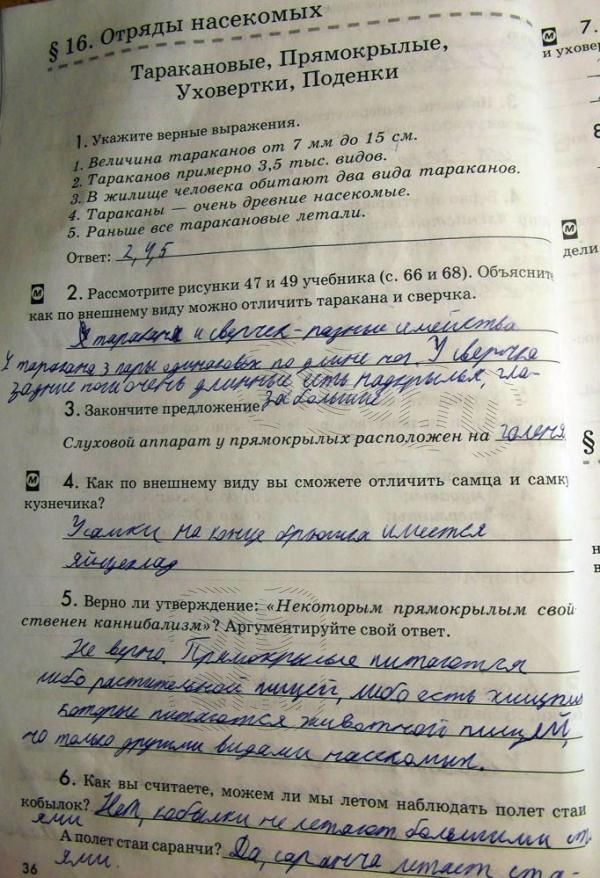 § 16. Отряды насекомых
Таракановые, Прямокрылые,
Уховертки, Поденки
1. Укажите верные выражения.
1. Величина тараканов от 7 мм до 15 см.
2. Тараканов примерно 3,5 тыс. видов.
3. В жилище человека обитают два вида тараканов.
4. Тараканы — очень древние насекомые.
5. Раньше все таракановые летали.
Ответ: 2, 4, 5
М 2. Рассмотрите рисунки 47 и 49 учебника (с. 66 и 68). Объясните
как по внешнему виду можно отличить таракана и сверчка.
таракан и сверчек - разные семейства
У таракана 3 пары одинаковых по длине ног. У сверчка
задние ноги очень длинные есть надкрылья, гла-
за большие
3. Закончите предложение
Слуховой аппарат у прямокрылых расположен на голеня
М 4. Как по внешнему виду вы сможете отличить самца и самку
кузнечика?
У самки на конце брюшка имеется
яйцеклад
5. Верно ли утверждение: «Некоторым прямокрылым свой
ственен каннибализм»? Аргументируйте свой ответ.
Не верно. Прямокрылые питаются
либо растительной пищей, либо есть хищники
которые питаются животной пищей,
но только другими видами насекомых.
6. Как вы считаете, можем ли мы летом наблюдать полет стаи
кобылок? Нет, кобылки не летают большими ст
аями
А полет стаи саранчи? Да, саранча летает ста-
ями.
36
М 7.
и уховер
8
М
дели
§
н
в